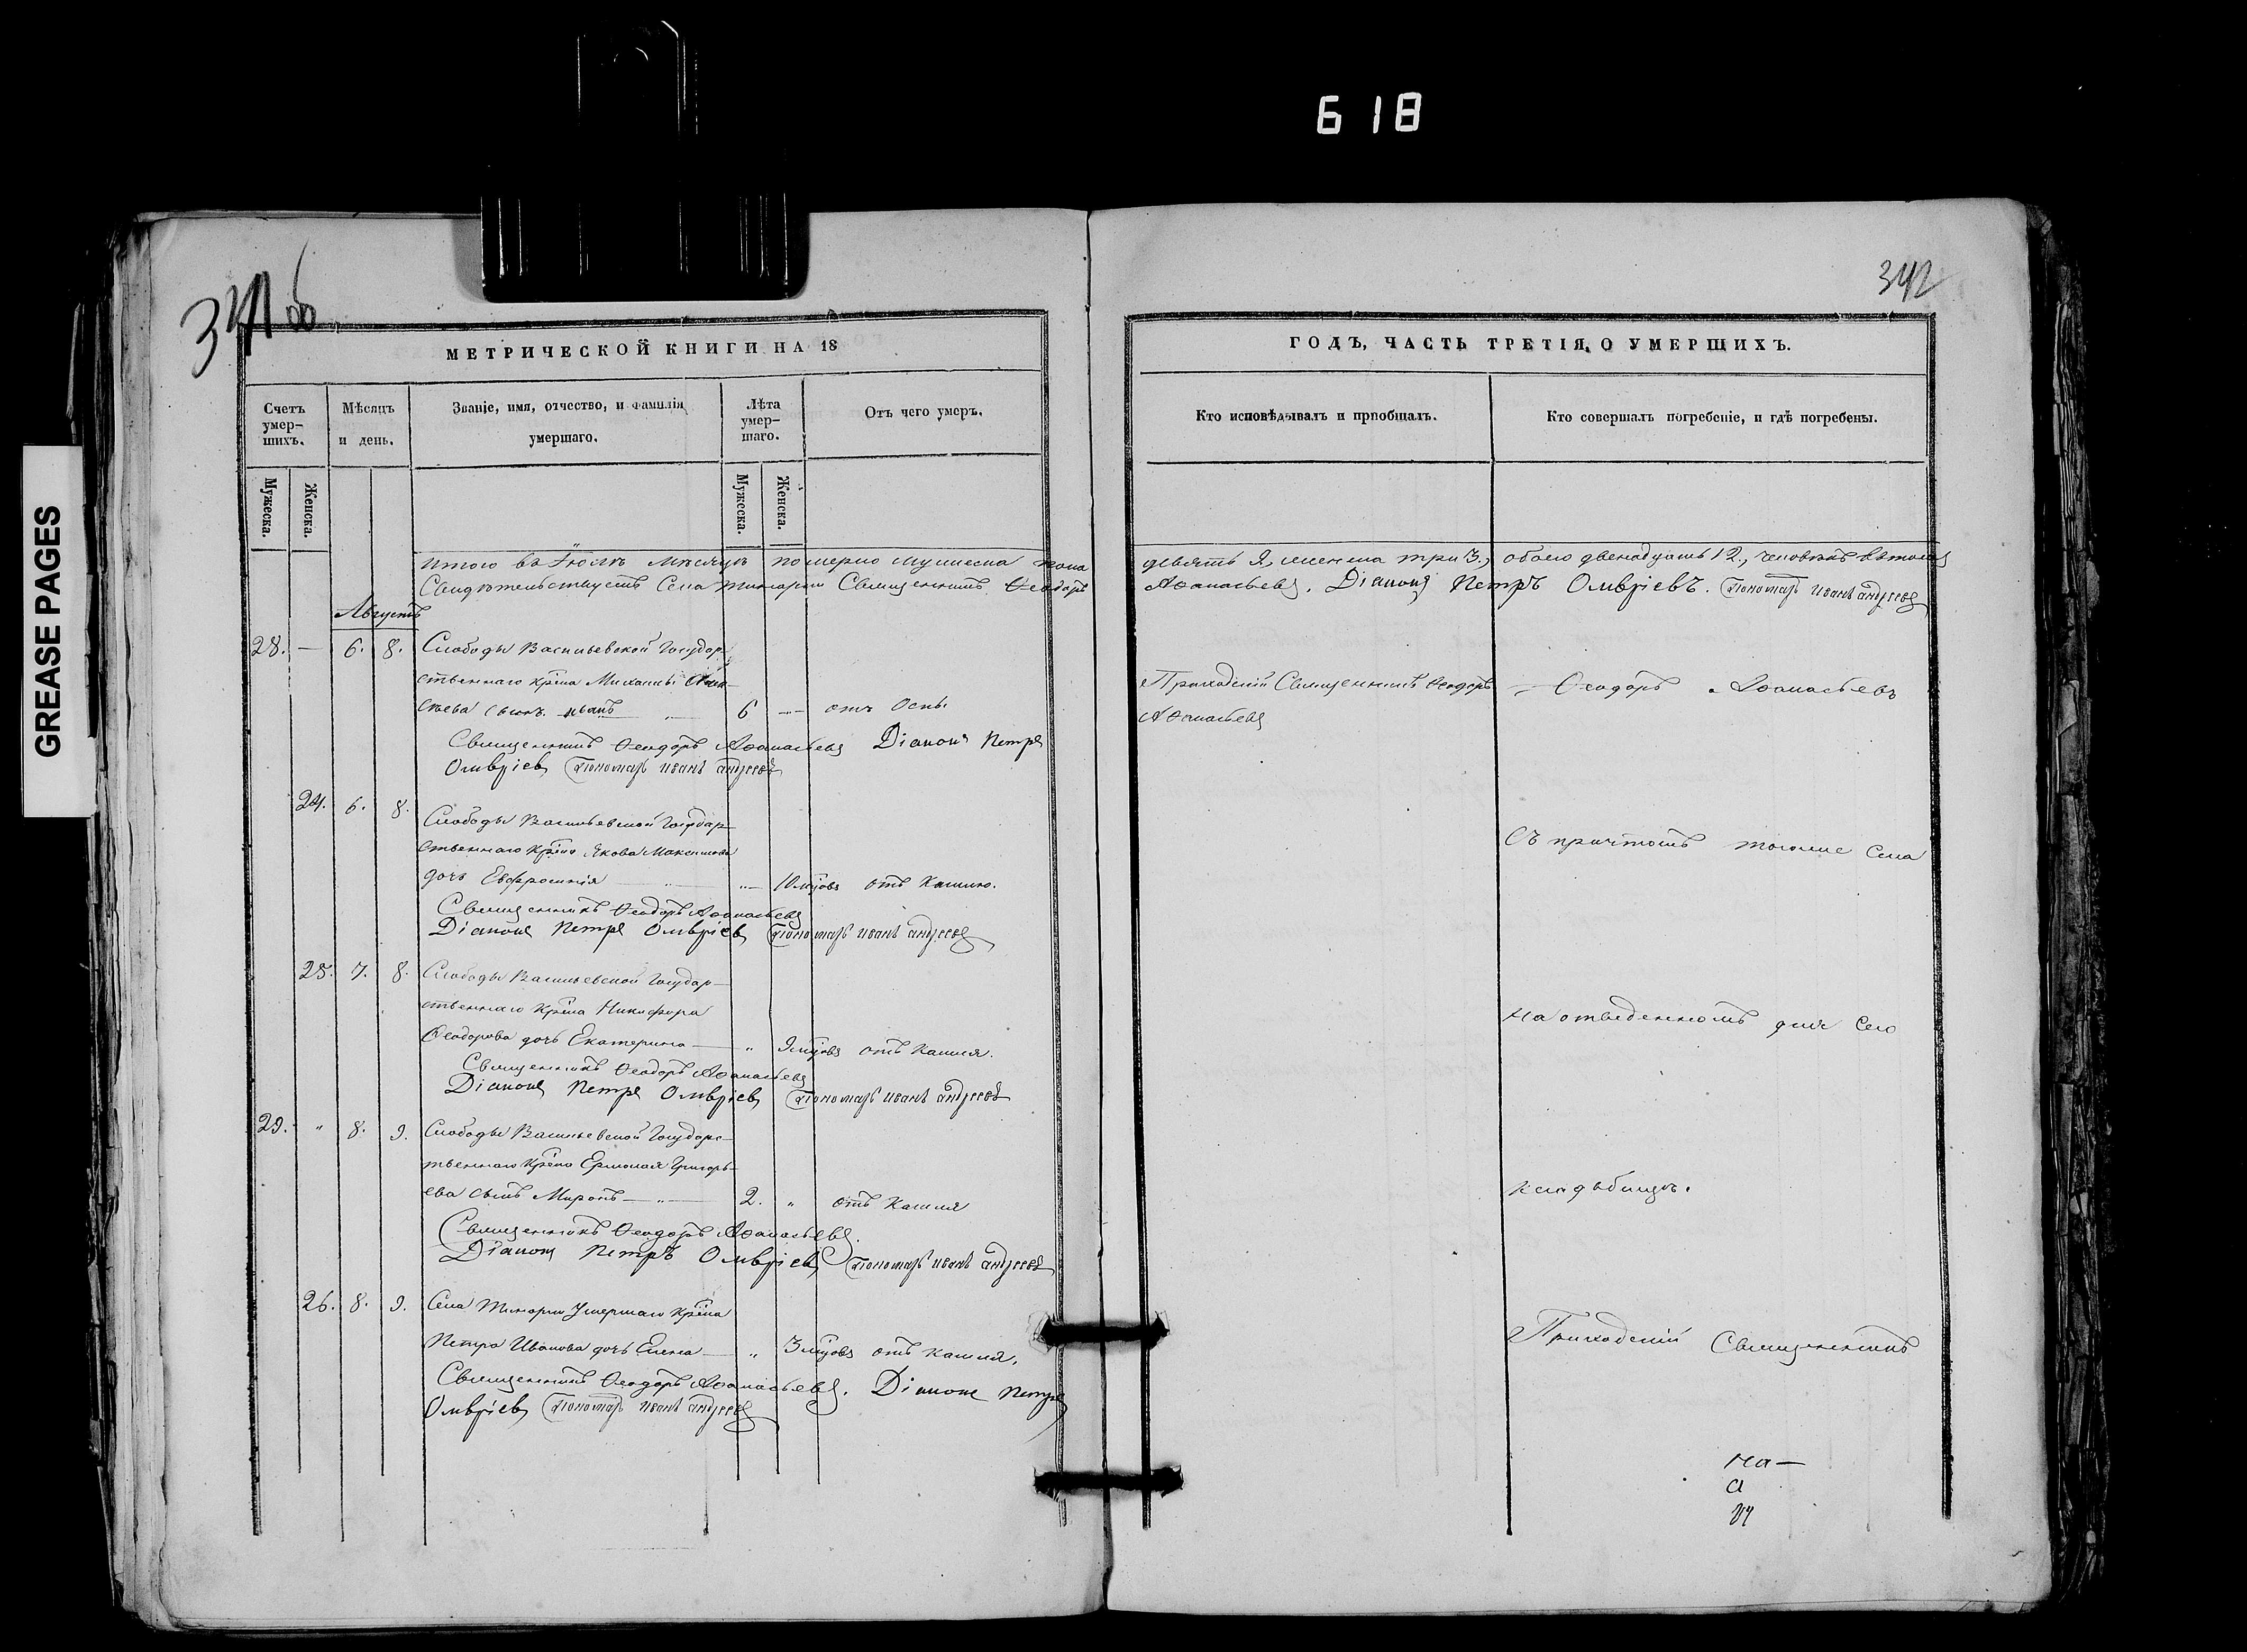 618
GREASE PAGES
341 об
342
МЕТРИЧЕСКОЙ КНИГИ НА 18
ГОДЪ, ЧАСТЬ ТРЕТІЯ, О УМЕРШИХЪ.
Счетъ умер-шихъ.
Мѣсяцъ и день.
Званіе, имя, отчество, и фамилія умершаго.
Лѣта умер-шаго.
Отъ чего умеръ.
Кто исповѣдывалъ и пріобщалъ.
Кто совершалъ погребеніе, и гдѣ погребены.
Мужеска.
Женска.
Мужеска.
Женска.
Итого въ Іюлѣ мѣсяцѣ померло мужеска пола девять 9, женска три 3, обоего двенадцать 12, человѣкъ въ томъ
Свидѣтельствуетъ Села Священникъ Ѳеодоръ Аѳанасьевъ. Діаконъ Петръ Омвріевъ. Пономарь Иванъ Андреевъ
Августъ
28. — 6. 8. Слободы Васильевской Государ-
ственнаго крѣна Михаила
сѣева сынъ Иванъ 6 — отъ Оспы.
Приходскій Священникъ Ѳеодоръ Аѳанасьевъ
Ѳеодоръ Аѳанасьевъ
Священникъ Ѳеодоръ Аѳанасьевъ Діаконъ Петръ
Омвріевъ Пономарь Иванъ Андреевъ
24. 6. 8.
Слободы Васильевской Государ-
ственнаго крѣна Якова Максимова
дочь Евфросинія 10 мцовъ отъ Кашлю.
Съ причтомъ тогоже Села
Священникъ Ѳеодоръ Аѳанасьевъ
Діаконъ Петръ Омвріевъ Пономарь Иванъ Андреевъ
25. 7. 8. Слободы Васильевской Государ-
ственнаго крѣна Никифора
Ѳеодорова дочь Екатерина — " 9 мцовъ отъ Кашля.
на отведенномъ для сего
Священникъ Ѳеодоръ Аѳанасьевъ
Діаконъ Петръ Омвріевъ Пономарь Иванъ Андреевъ
29. " 8. 9. Слободы Васильевской Государс-
твеннаго крѣна Ермолая Григорь-
ева сынъ Миронъ — " — 2. " отъ Кашля
кладбищѣ.
Священникъ Ѳеодоръ Аѳанасьевъ.
Діаконъ Петръ Омвріевъ Пономарь Иванъ Андреевъ
26. 8. 9. Села Умершаго крѣна
Петра Иванова дочь Елена — " 3 мцовъ отъ кашля.
Приходскій Священникъ
Священникъ Ѳеодоръ Аѳанасьевъ. Діаконъ Петръ
Омвріевъ Пономарь Иванъ Андреевъ
на —
а